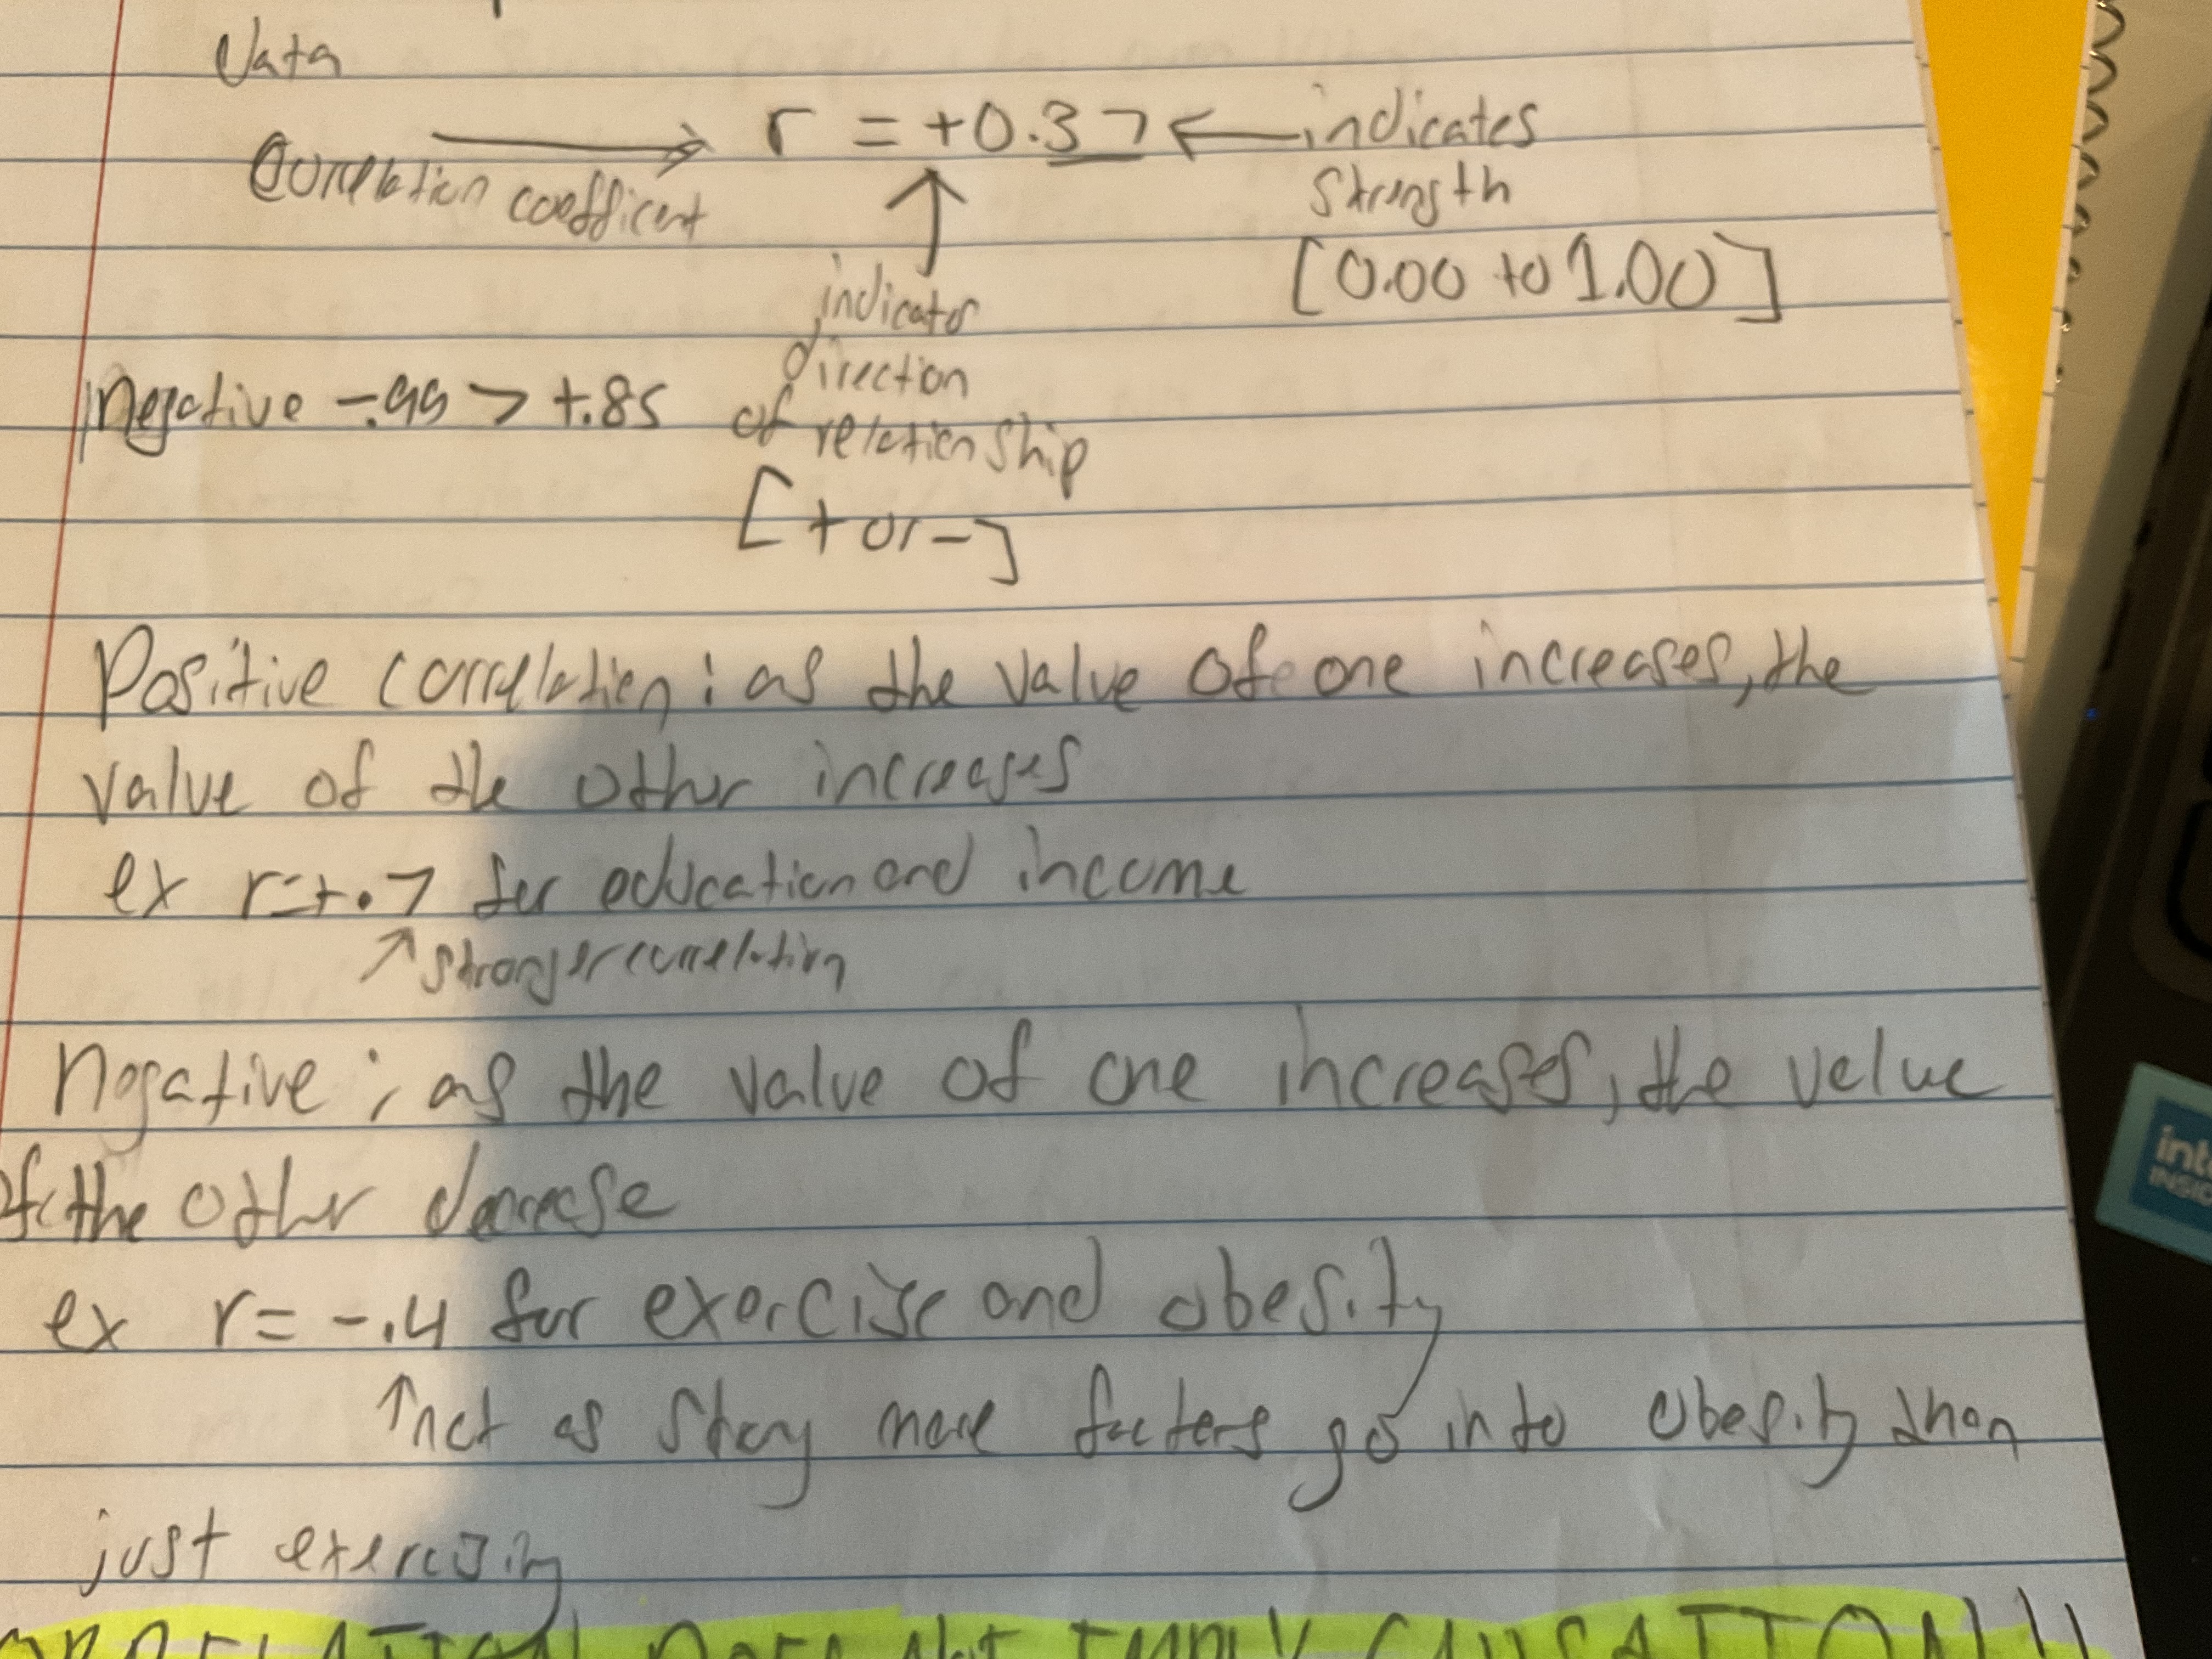 Data
Correlation coefficent → r = +0.37 ← indicates
strength
[0.00 to 1.00]
↑
indicator
direction
of relationship
[+ or -]
negative -.99 > +.85
Positive correlation: as the value of one increases, the
value of the other increases
ex r=+.7 for education and income
↑ stronger correlation
Negative: as the value of one increases, the value
of the other decrease
ex r= -.4 for exercise and obesity
↑ not as strong more factors go into obesity than
just exercising
CORRELATION DOES NOT IMPLY CAUSATION!!
intel
INSIDE